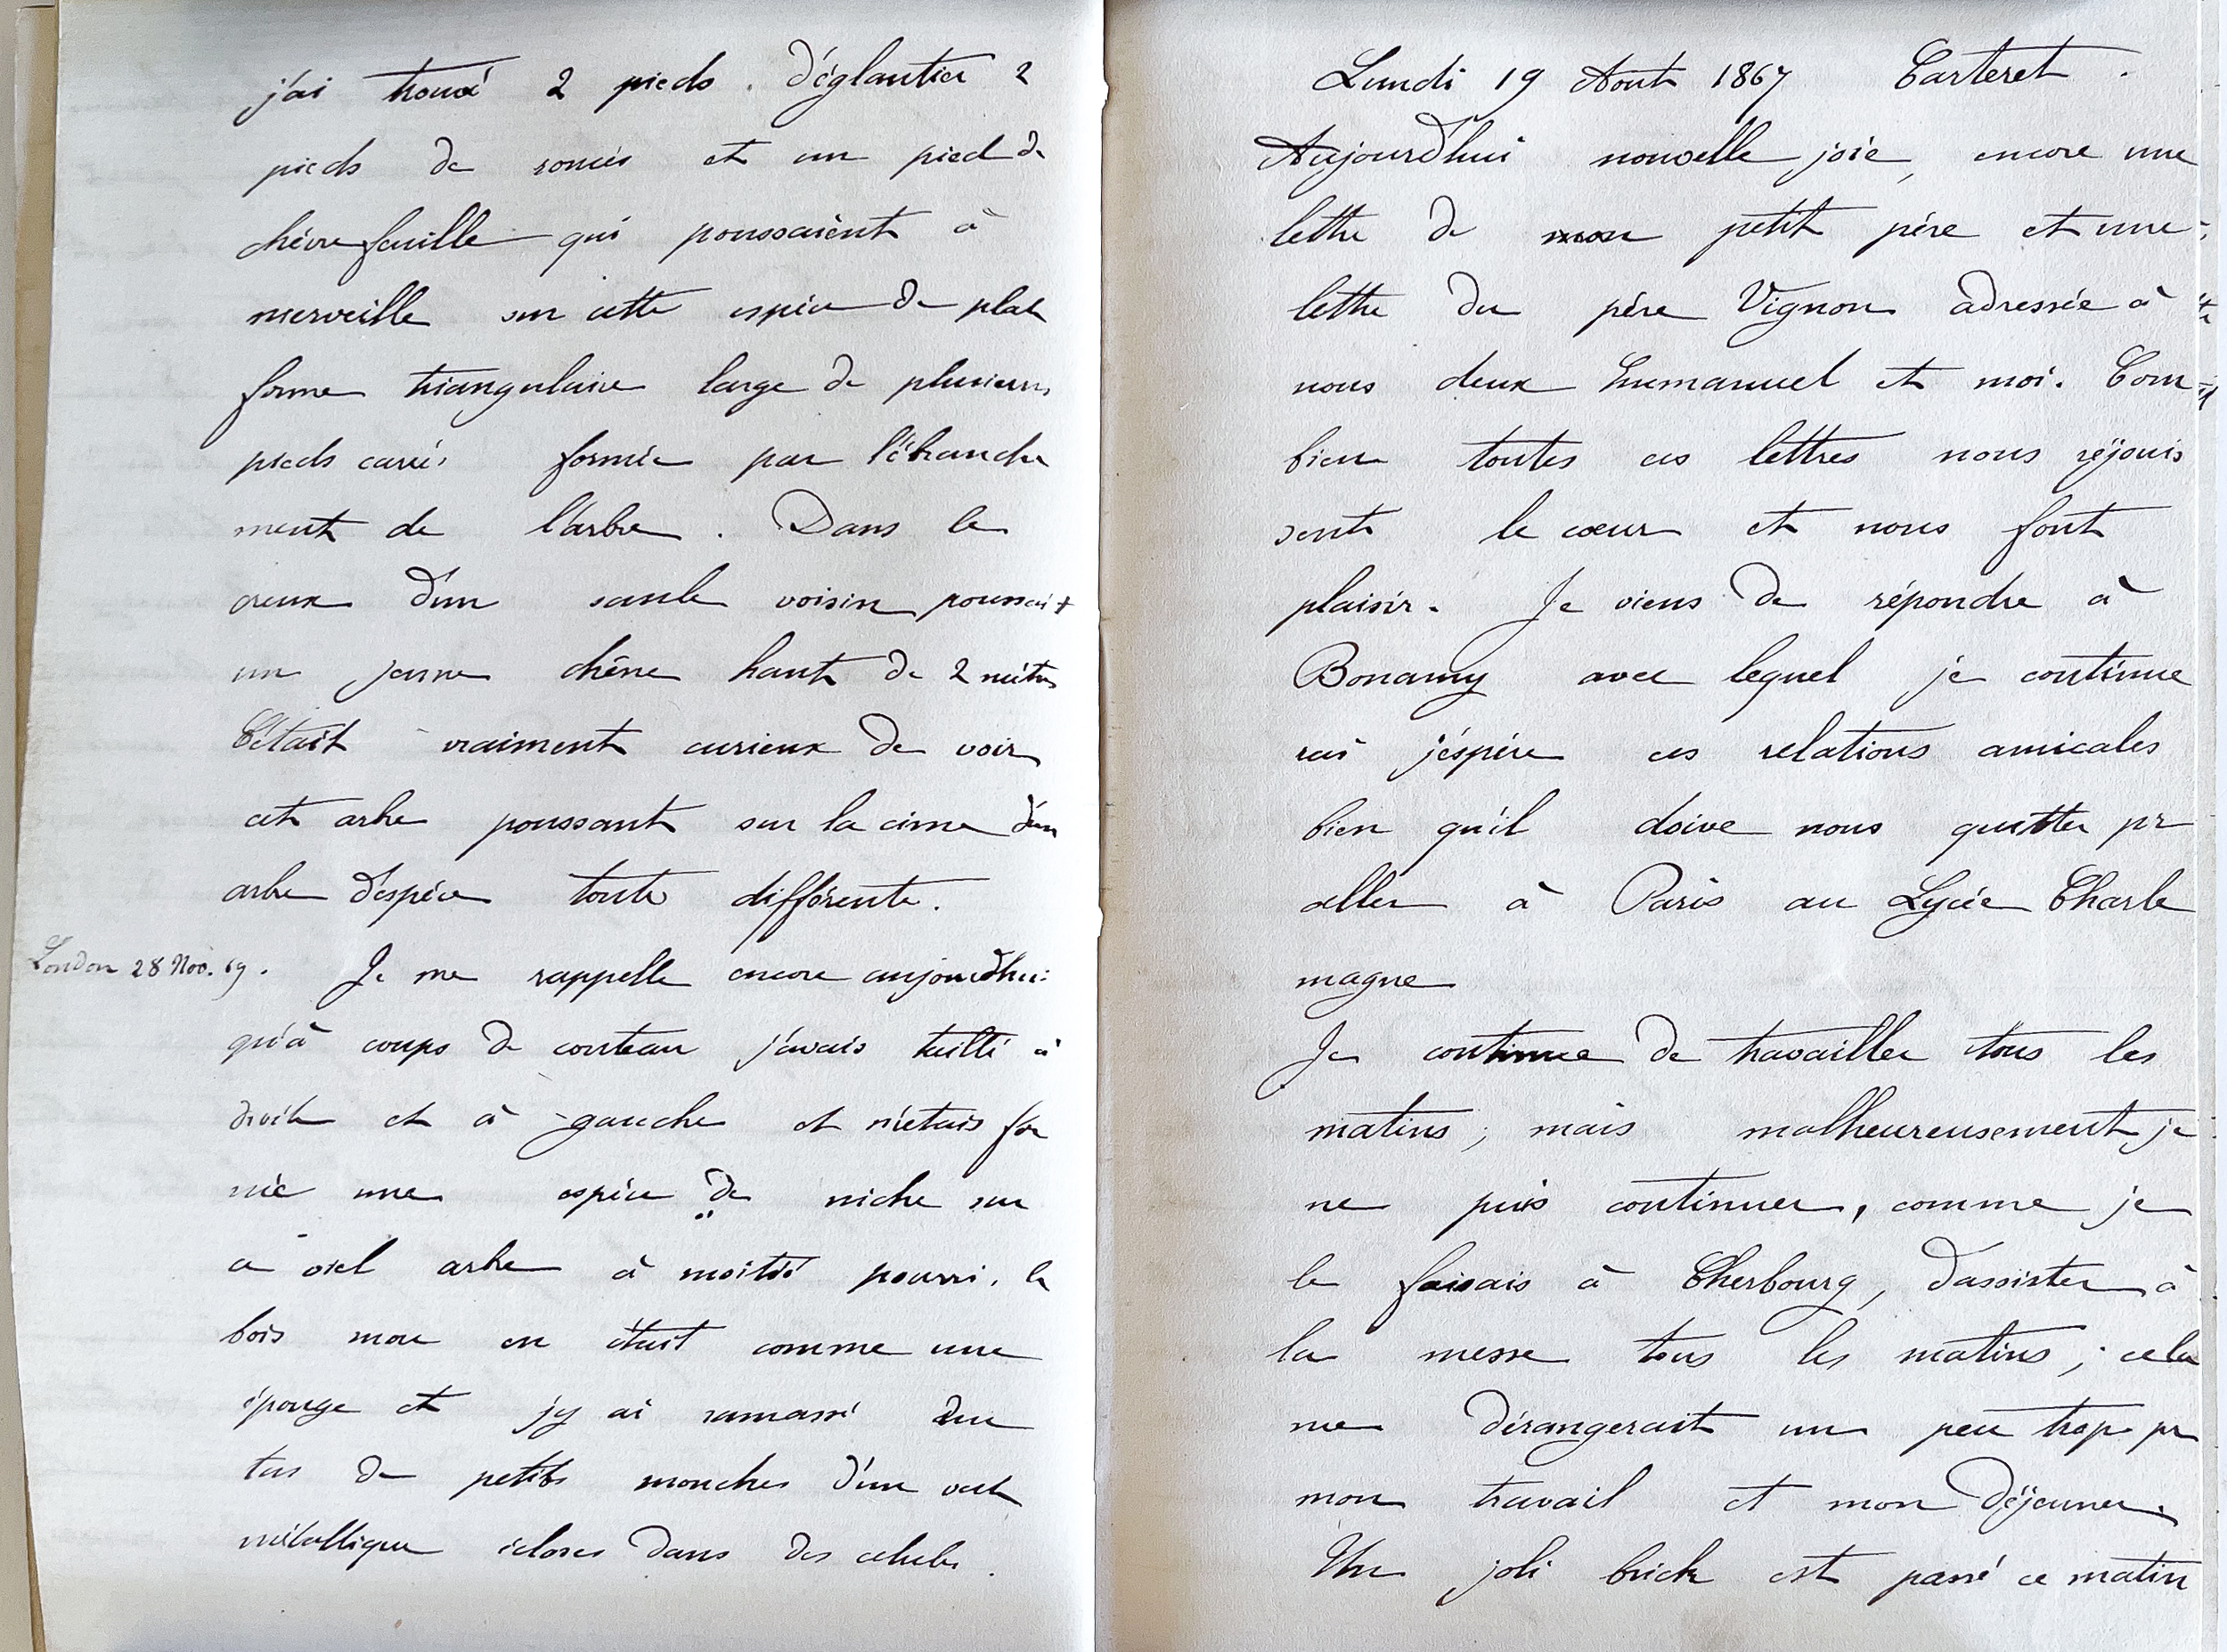 j'ai trouvé 2 pieds. d'églantier 2
pieds de ronces et un pied de
chèvrefeuille qui poussaient à
merveille sur cette espèce de plat
forme triangulaire large de plusieurs
pieds carrés formée par l'ébranche
ment de l'arbre. Dans le
creux d'un saule voisin poussait
un jeune chêne haut de 2 mètres
C'était vraiment curieux de voir
cet arbre poussant sur la cime d'un
arbre d'espèce toute différente.
London 28 Nov. 69. Je me rappelle encore aujourd'hui
qu'à coups de couteau j'avais taillé à
droite et à gauche et m'étais for
mé une espèce de niche sur
ce viel arbre à moitié pourri. le
bois mou en était comme une
éponge et j'y ai ramassé
tas de petits mouches d'un vert
métallique écloses dans des
Lundi 19 Aout 1867 Carteret.
Aujourd'hui nouvelle joie, encore une
lettre de mon petit père et une
lettre du père Vignon adressée à
nous deux Emmanuel et moi. Com
bien toutes ces lettres nous réjouis
sent le cœur et nous font
plaisir. Je viens de répondre à
Bonamy avec lequel je continue
rai j'éspère ces relations amicales
bien qu'il doive nous quitter pr
aller à Paris au Lycée Charle
magne
Je continue de travailler tous les
matins; mais malheureusement je
ne puis continuer, comme je
le faisais à Cherbourg, d'assister à
la messe tous les matins; cela
me dérangerait un peu trop pr
mon travail et mon déjeuner.
Un joli brick est passé ce matin